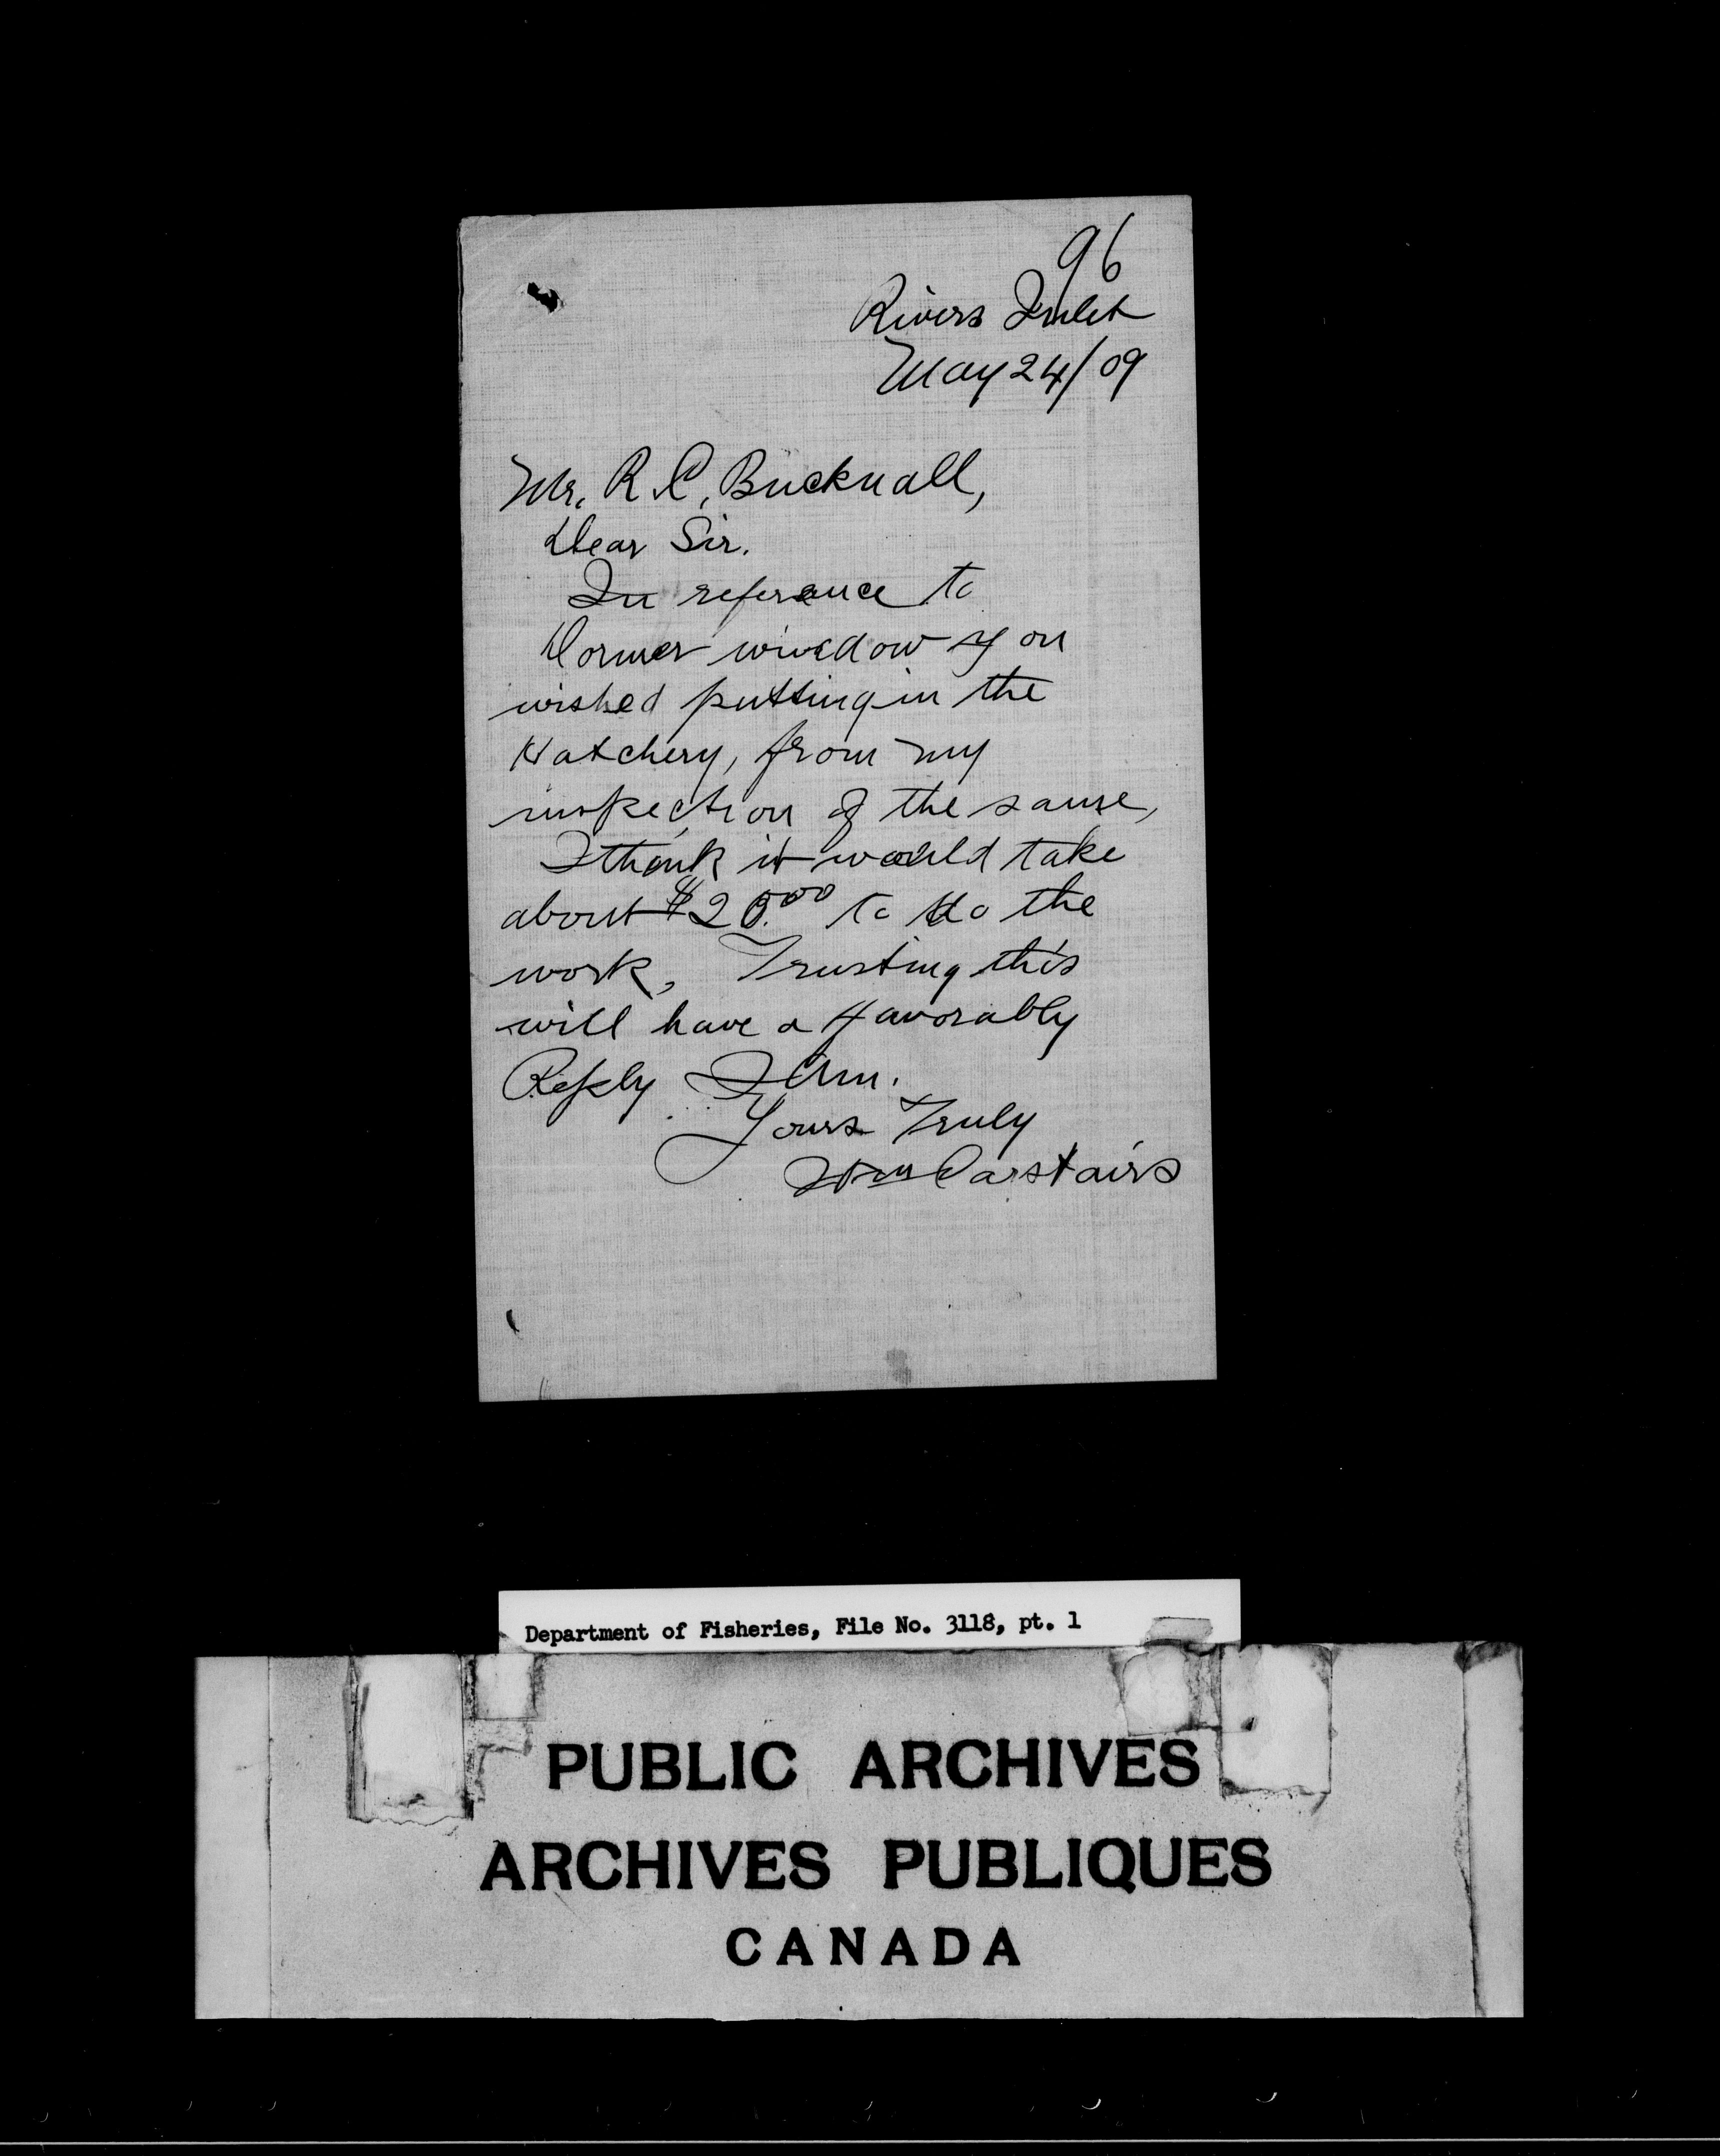 96
Rivers Inlet
May 24/09
Mr. R. C. Bucknall,
Dear Sir.
In referance to
Dormer window you
wished putting in the
Hatchery, from my
inspection of the same,
I think it would take
about $ to do the
work, Trusting this
will have a favorably
Reply I Am.
Yours Truly
Wm Carstairs
Department of Fisheries, File No. 3118, pt. 1
PUBLIC ARCHIVES
ARCHIVES PUBLIQUES
CANADA